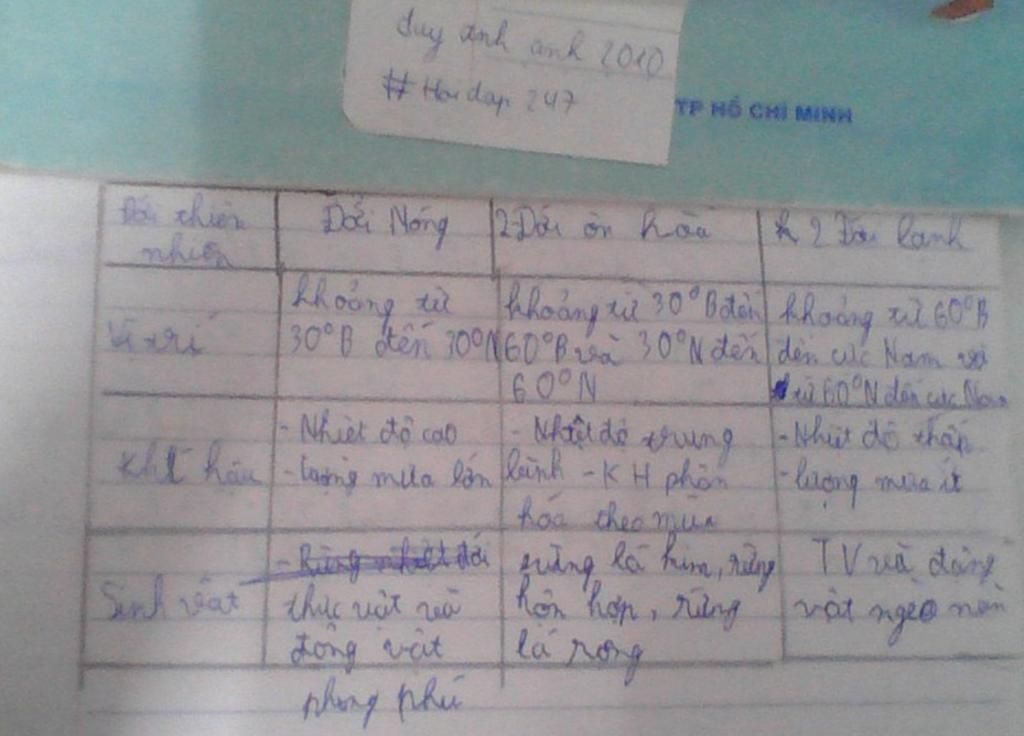 duy anh anh 2010
#Hoidap 247
TP HỒ CHÍ MINH
Đới thiên nhiên
Đới Nóng
2 Đới ôn hòa
2 Đới lạnh
Vị trí
khoảng từ
30°B đến 30°N
khoảng từ 30°B đến
60°B và 30°N đến
60°N
khoảng từ 60°B
đến cực Nam và
từ 60°N đến cực Nam
Khí hậu
- Nhiệt độ cao
- lượng mưa lớn
- Nhiệt độ trung
bình - KH phân
hóa theo mùa
- Nhiệt độ thấp
- lượng mưa ít
Sinh vật
- Rừng nhiệt đới
thực vật và
động vật
phong phú
rừng lá kim, rừng
hỗn hợp, rừng
lá rộng
TV và động
vật nghèo nàn